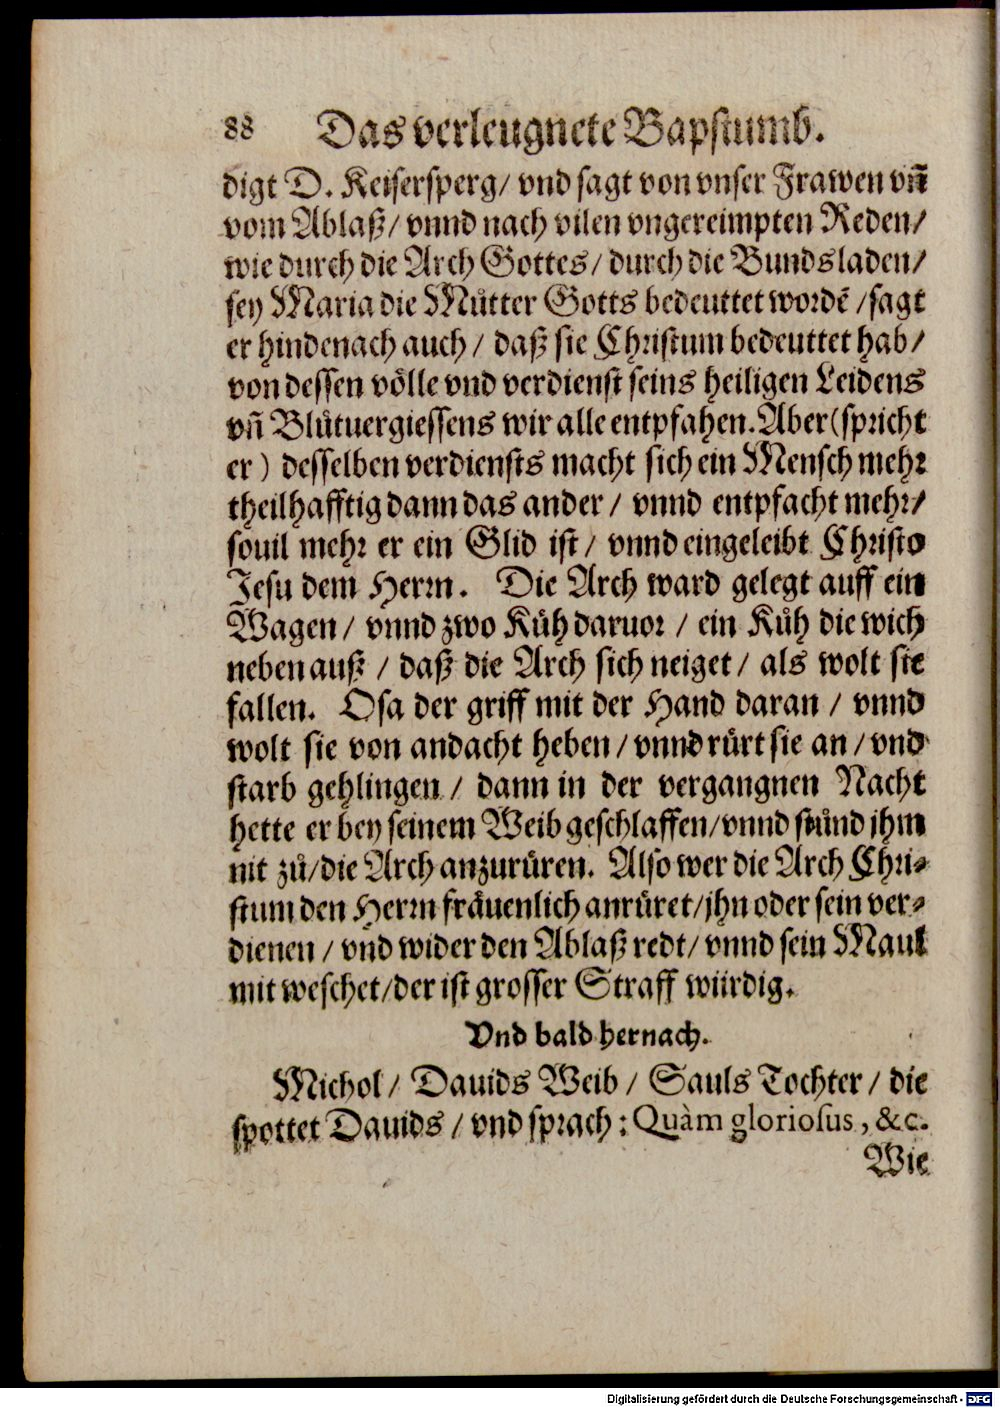 88 Das verleugnete Bapstumb.
digt D. Keisersperg/ vnd sagt von vnser Frawen vñ
vom Ablaß/ vnnd nach vilen vngereimpten Reden/
wie durch die Arch Gottes/ durch die Bundsladen/
sey Maria die Můtter Gotts bedeuttet wordẽ /sagt
er hindenach auch / daß sie Christum bedeuttet hab/
von dessen völle vnd verdienst seins heiligen Leidens
vñ Blůtuergiessens wir alle entpfahen. Aber (spricht
er) desselben verdiensts macht sich ein Mensch mehr
theilhafftig dann das ander / vnnd entpfacht mehr/
souil mehr er ein Glid ist / vnnd eingeleibt Christo
Jesu dem Herrn. Die Arch ward gelegt auff ein
Wagen / vnnd zwo Küh daruor / ein Küh die wich
neben auß / daß die Arch sich neiget / als wolt sie
fallen. Osa der griff mit der Hand daran / vnnd
wolt sie von andacht heben / vnnd rürt sie an / vnd
starb gehlingen / dann in der vergangnen Nacht
hette er bey seinem Weib geschlaffen/vnnd stůnd jhm
nit zů/die Arch anzurüren. Also wer die Arch Chri-
stum den Herrn fräuenlich anrüret/jhn oder sein ver-
dienen / vnd wider den Ablaß redt/ vnnd sein Maul
mit weschet/der ist grosser Straff würdig.
Vnd bald hernach.
Michol / Dauids Weib / Sauls Tochter / die
spottet Dauids / vnd sprach: Quàm gloriosus, &c.
Wie
Digitalisierung gefördert durch die Deutsche Forschungsgemeinschaft - DFG